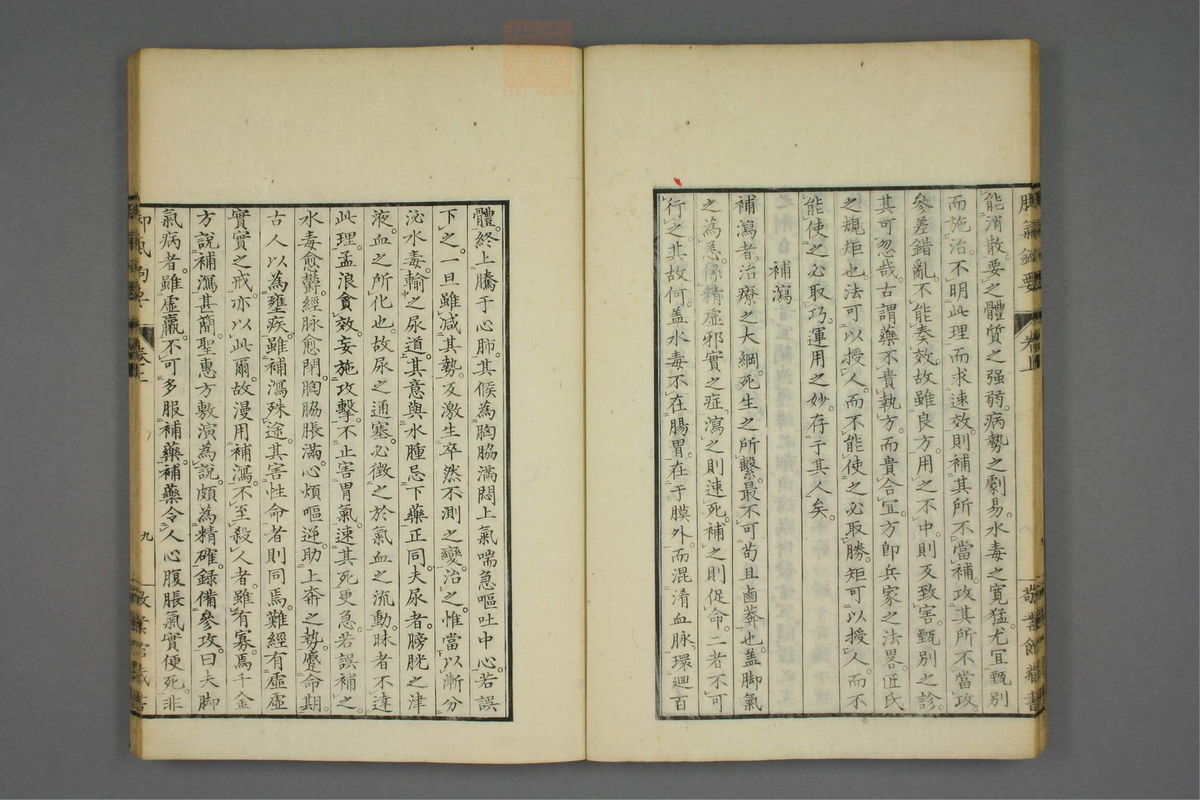 能消散要之體質之强弱病勢之劇易水毒之寛猛尤宜甄別
而施治不明此理而求速效則補其所不當補攻其所不當攻
參差錯亂不能奏效故雖良方用之不中則反致害甄別之診
其可忽哉古謂藥不貴執方而貴合宜方卽兵家之法畧匠氏
之規矩也法可以授人而不能使之必取勝矩可以授人而不
能使之必取巧運用之妙存于其人矣
補瀉
補瀉者治療之大綱死生之所繫最不可苟且鹵莽也蓋脚氣
之為恙係精虛邪實之症瀉之則速死補之則促命二者不可
行之其故何盖水毒不在腸胃在于膜外而混淆血脉環廻百
體終上騰于心肺其候為胸脇滿悶上氣喘急嘔吐中心若誤
下之一旦雖減其勢反激生卒然不測之變治之惟當以漸分
泌水毒輸之尿道其意與水腫忌下藥正同夫尿者膀胱之津
液血之所化也故尿之通塞必徴之於氣血之流動昧者不達
此理孟浪貪效妄施攻擊不止害胃氣速其死更急若誤補之
水毒愈欝經脉愈閉胸脇脹滿心煩嘔逆助上奔之勢蹙命期
古人以為壅疾雖補瀉殊途其害性命者則同焉難經有虛虛
實實之戒亦以此爾故漫用補瀉不至殺人者雖有寡焉千金
方說補瀉甚簡聖惠方敷演為說頗為精確録備參攻曰夫脚
氣病者雖虛羸不可多服補藥補藥令人心腹脹氣實便死非
脚氣鉤要
卷上
九
敬業館藏書